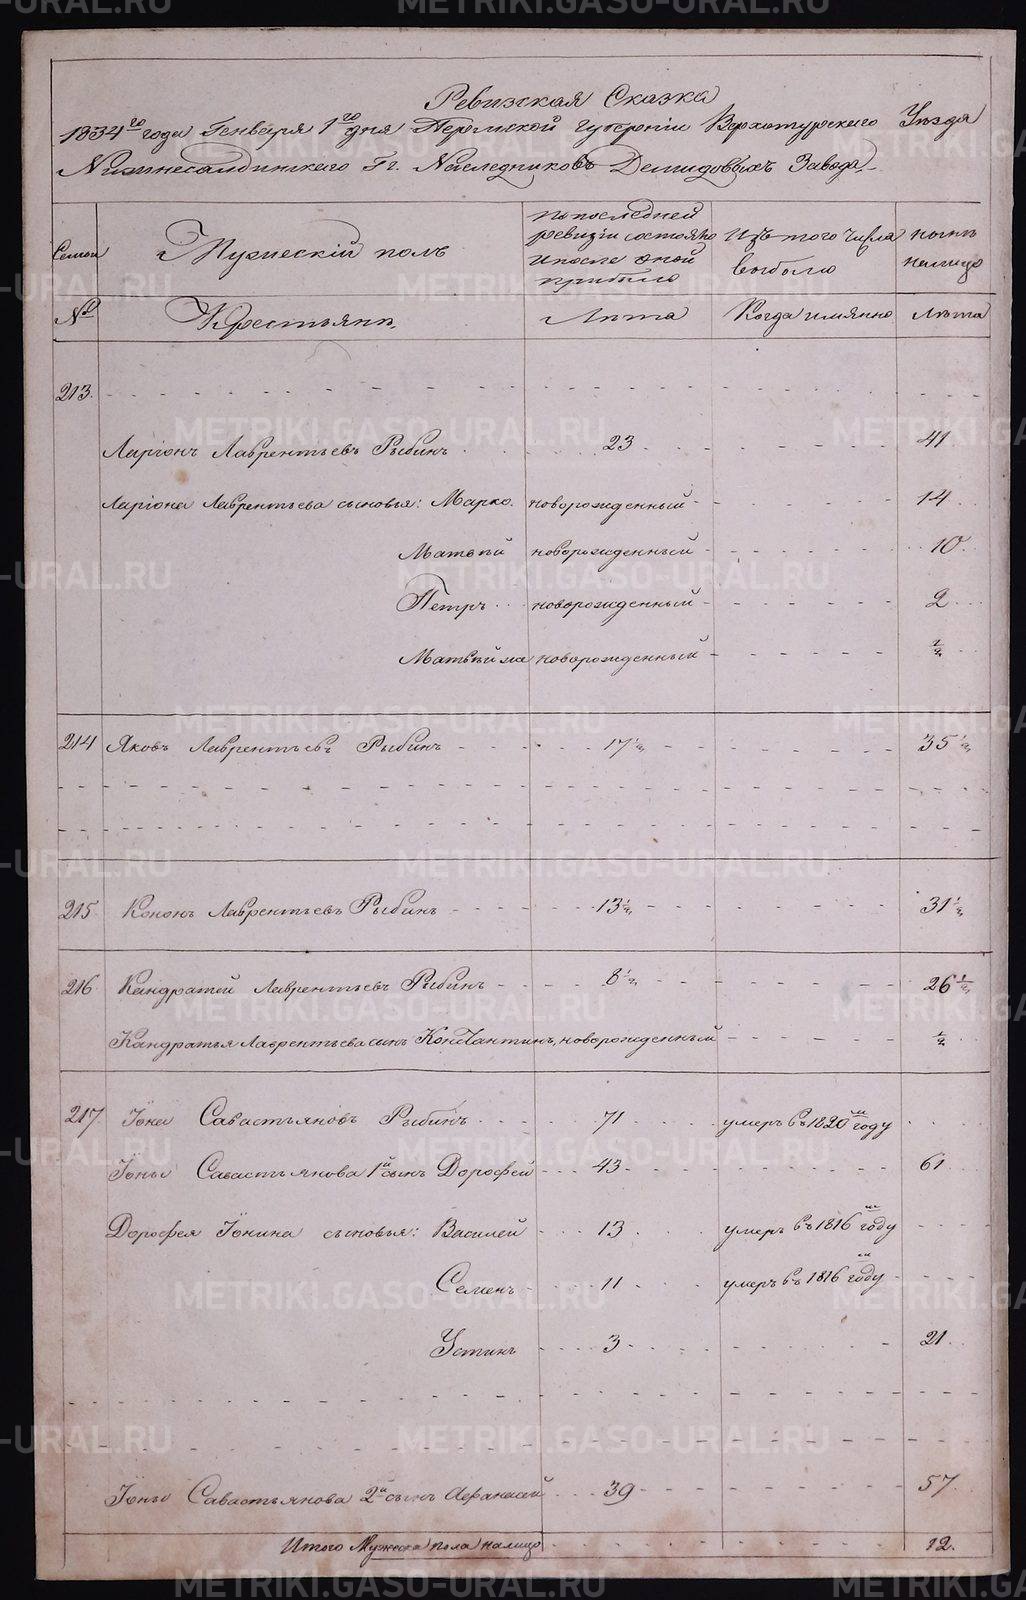 Ревизская Сказка
1834го года Генваря 1го дня Пермской губернiи Верхотурскаго Уѣзда
Нижнесалдинскаго Гг. Наслѣдниковъ Демидовыхъ Завода,
Семьи
Мужескiй полъ
По последней ревизiи состояло и после оной прибыло
Изъ того числа выбыло
Нынѣ на лицо
№
Крестьянѣ,
Лѣта
Когда имянно
Лѣта
213.
Ларiонъ Лаврентьевъ Рыбинъ 23 41
Ларiона Лаврентьева сыновья: Марко. новорожденный 14
Матвѣй новорожденный 10
Петръ новорожденный 2
Матвѣй же новорожденный ½
214 Яковъ Лаврентьевъ Рыбинъ 17½ 35½
215 Кононъ Лаврентьевъ Рыбинъ 13½ 31½
216 Кандратей Лаврентьевъ Рыбинъ 8½ 26½
Кандратья Лаврентьева сынъ Константинъ, новорожденный ½
217 Iона Савастьяновъ Рыбинъ 71 умеръ въ 1820м году
Iоны Савастьянова 1й сынъ Дорофей 43 61
Дорофея Iонина сыновья: Василей 13 умеръ въ 1816м году
Семенъ 11 умеръ въ 1816м году
Устинъ 3 21
Iоны Савастьянова 2й сынъ Афанасей 39 57
Итого Мужеска пола на лицо 12.
METRIKI.GASO-URAL.RU